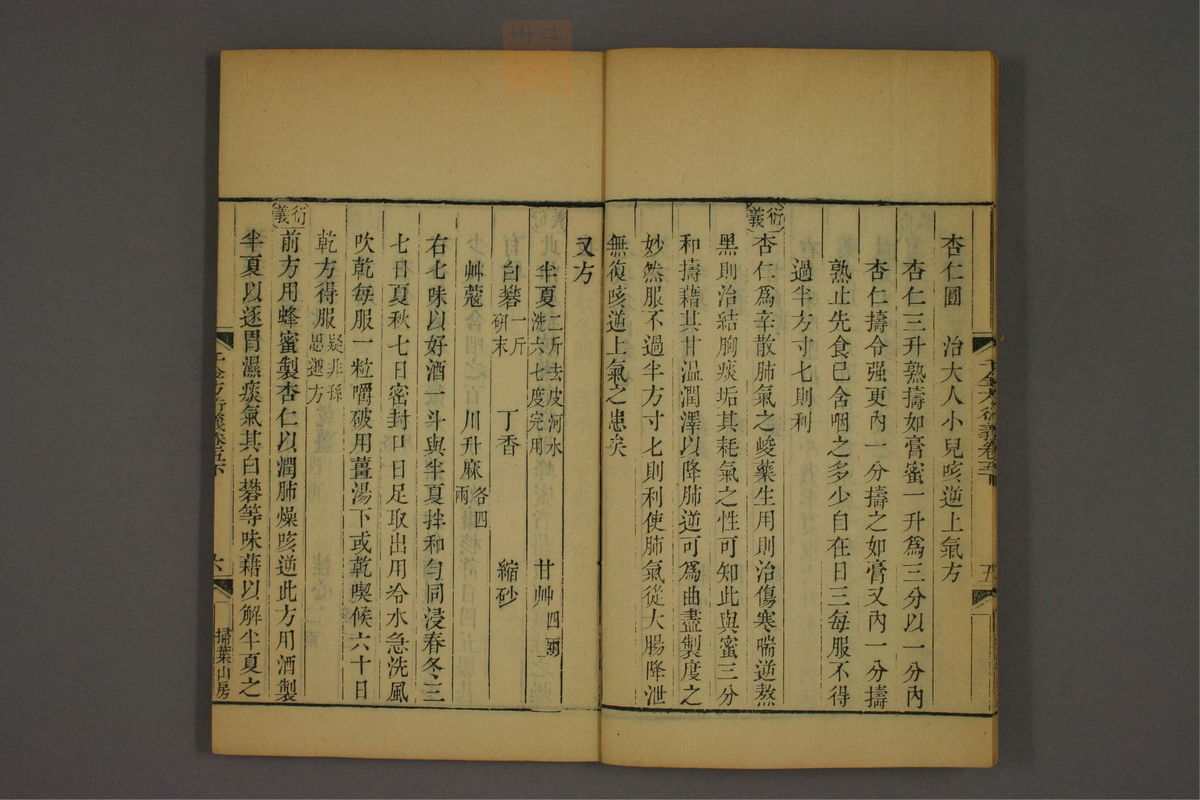 杏仁圓　治大人小兒咳逆上氣方
杏仁三升熟擣如膏蜜一升爲三分以一分內
杏仁擣令强更內一分擣之如膏又內一分擣
熟止先食已含咽之多少自在日三每服不得
過半方寸匕則利
衍義
杏仁爲辛散肺氣之峻藥生用則治傷寒喘逆熬
黑則治結胸痰垢其耗氣之性可知此與蜜三分
和擣藉其甘温潤澤以降肺逆可爲曲盡製度之
妙然服不過半方寸匕則利使肺氣從大腸降泄
無復咳逆上氣之患矣
千金方衍義卷五下
五
又方
半夏 二斤去皮河水洗六七度完用　甘艸 四兩
白礬 一斤硏末　丁香　縮砂
艸蔻　川升麻 各四兩
右七味以好酒一斗與半夏拌和勻同浸春冬三
七日夏秋七日密封口日足取出用冷水急洗風
吹乾每服一粒嚼破用薑湯下或乾喫候六十日
乾方得服 疑非孫思邈方
衍義
前方用蜂蜜製杏仁以潤肺燥咳逆此方用酒製
半夏以逐胃濕痰氣其白礬等味藉以解半夏之
千金方衍義卷五下
六
掃葉山房